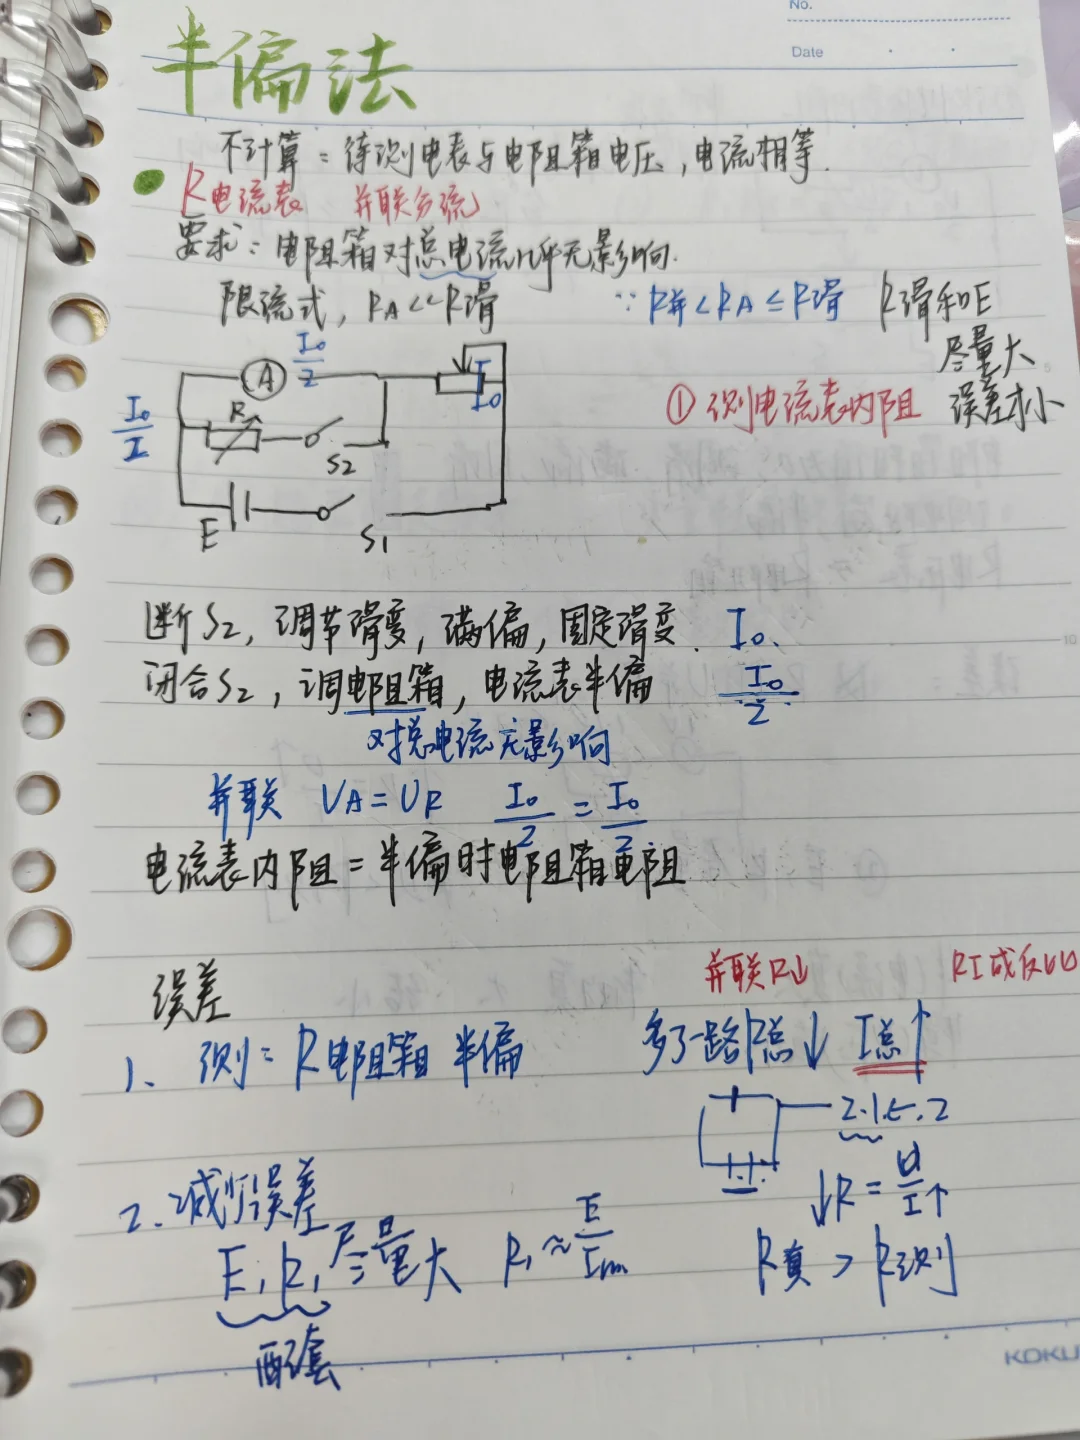 No.
Date
半偏法
不计算：待测电表与电阻箱电压，电流相等.
R电流表 并联分流
要求：电阻箱对总电流几乎无影响.
限流式，RA<<R滑
∵ R并<RA≤R滑 R滑和E
尽量大
误差小
① 测电流表内阻
A
I₀/2
I₀
I₀/I
R
S2
E
S1
断S2，调节滑变，满偏，固定滑变. I₀.
闭合S2，调电阻箱，电流表半偏 I₀/2
对总电流无影响
并联 UA=UR I₀/2 = I₀/2.
电流表内阻=半偏时电阻箱电阻
误差
并联R↓ RI成反比
1、测=R电阻箱 半偏
多了一路R总↓ I总↑
2、减小误差
↓R=U/I↑
E，R，尽量大 R₁≈E/Im
R真>R测
配套